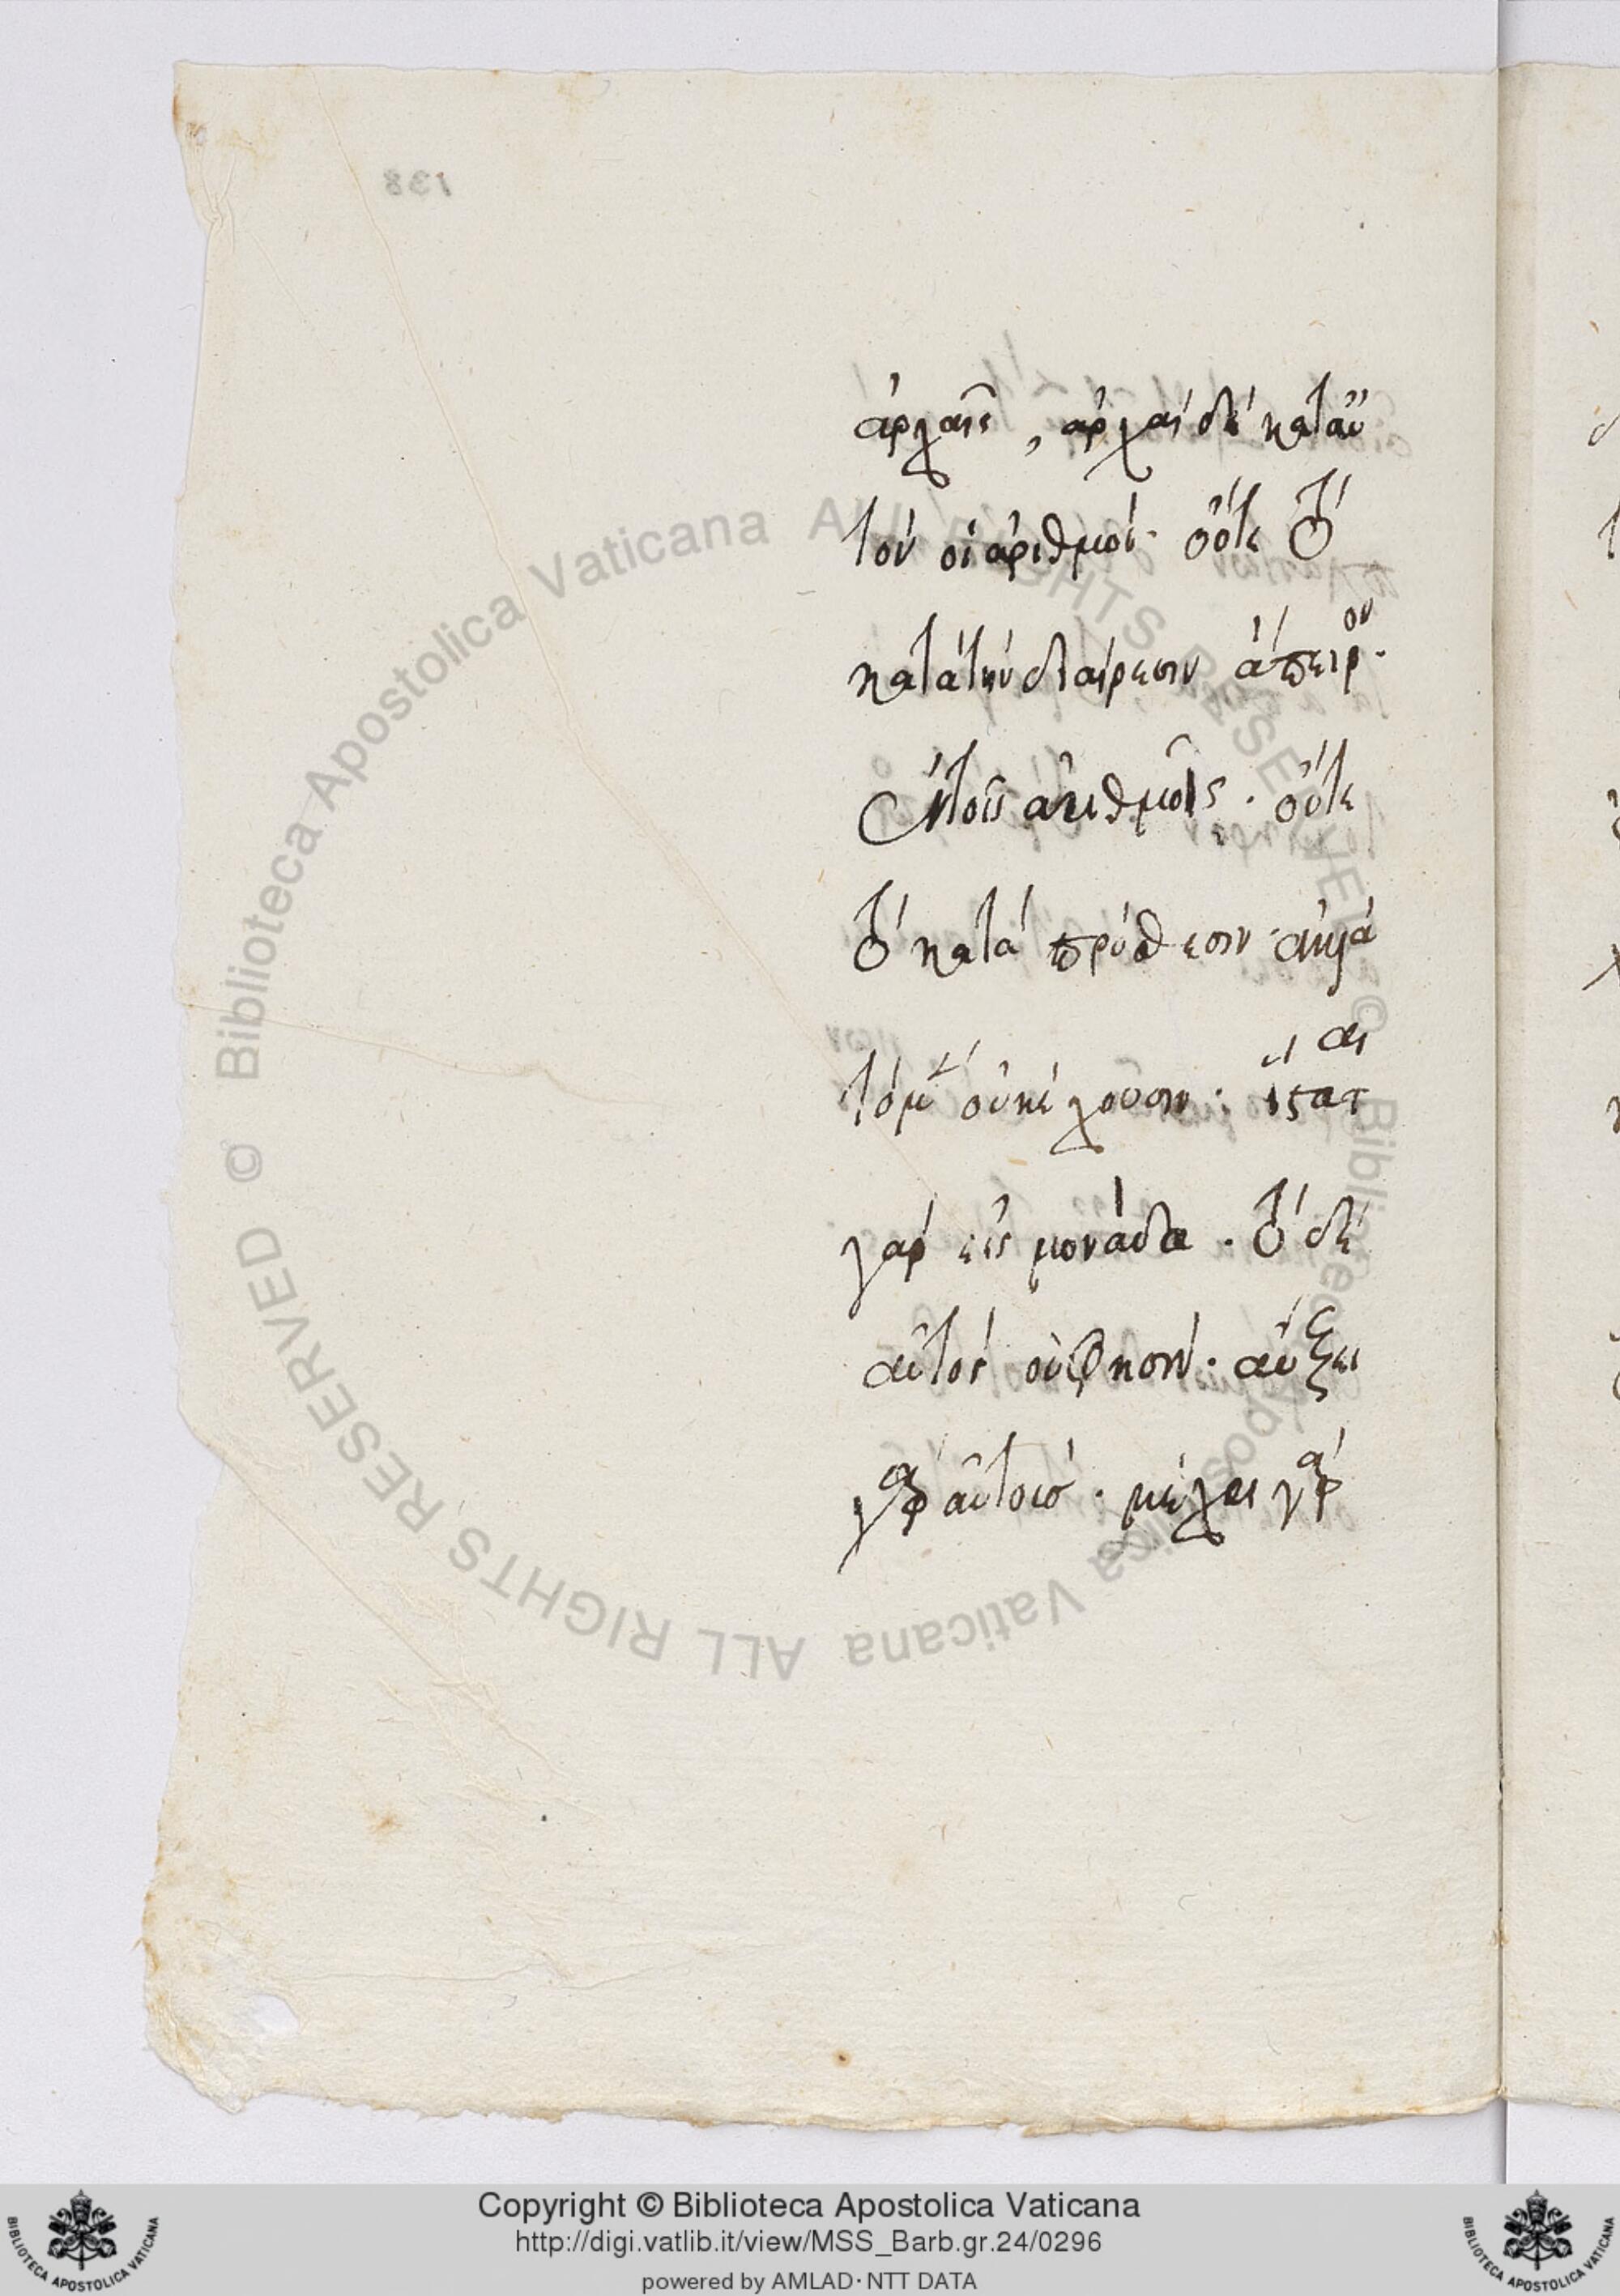 138
ἀρχαῖς, ἀρχαί δέ κατ' αὐ
τόν οἱ ἀριθμοί· οὔτε τό
κατά τήν διαίρεσιν ἄπειρον·
ἐν τοῖς ἀριθμοῖς. οὔτε
τό κατά πρόσθεσιν
οὐκ έχουσιν·
γάρ εἰς μονάδα. τό δέ
αὐτός οὔφησιν· αὔξει
γάρ αὐτούσ· μέχρι γάρ
© Biblioteca Apostolica Vaticana ALL RIGHTS RESERVED © Biblioteca Apostolica Vaticana ALL RIGHTS RESERVED
Copyright © Biblioteca Apostolica Vaticana
http://digi.vatlib.it/view/MSS_Barb.gr.24/0296
powered by AMLAD·NTT DATA
BIBLIOTECA APOSTOLICA VATICANA
BIBLIOTECA APOSTOLICA VATICANA